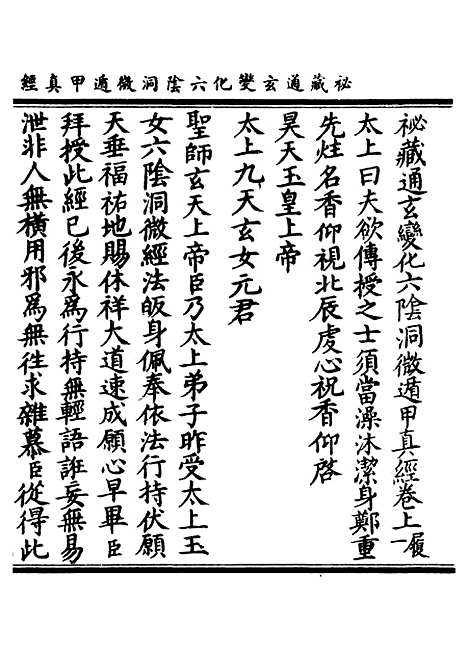 祕藏通玄變化六陰洞微遁甲真經
祕藏通玄變化六陰洞微遁甲真經卷上一履
太上曰夫欲傳授之士須當澡沐潔身鄭重
先炷名香仰視北辰虔心祝香仰啓
昊天玉皇上帝
太上九天玄女元君
聖師玄天上帝臣乃太上弟子昨受太上玉
女六陰洞微經法皈身佩奉依法行持伏願
天垂福祐地賜休祥大道速成願心早畢臣
拜授此經已後永爲行持無輕語誑妄無易
泄非人無橫用邪爲無徃求雜慕臣從得此